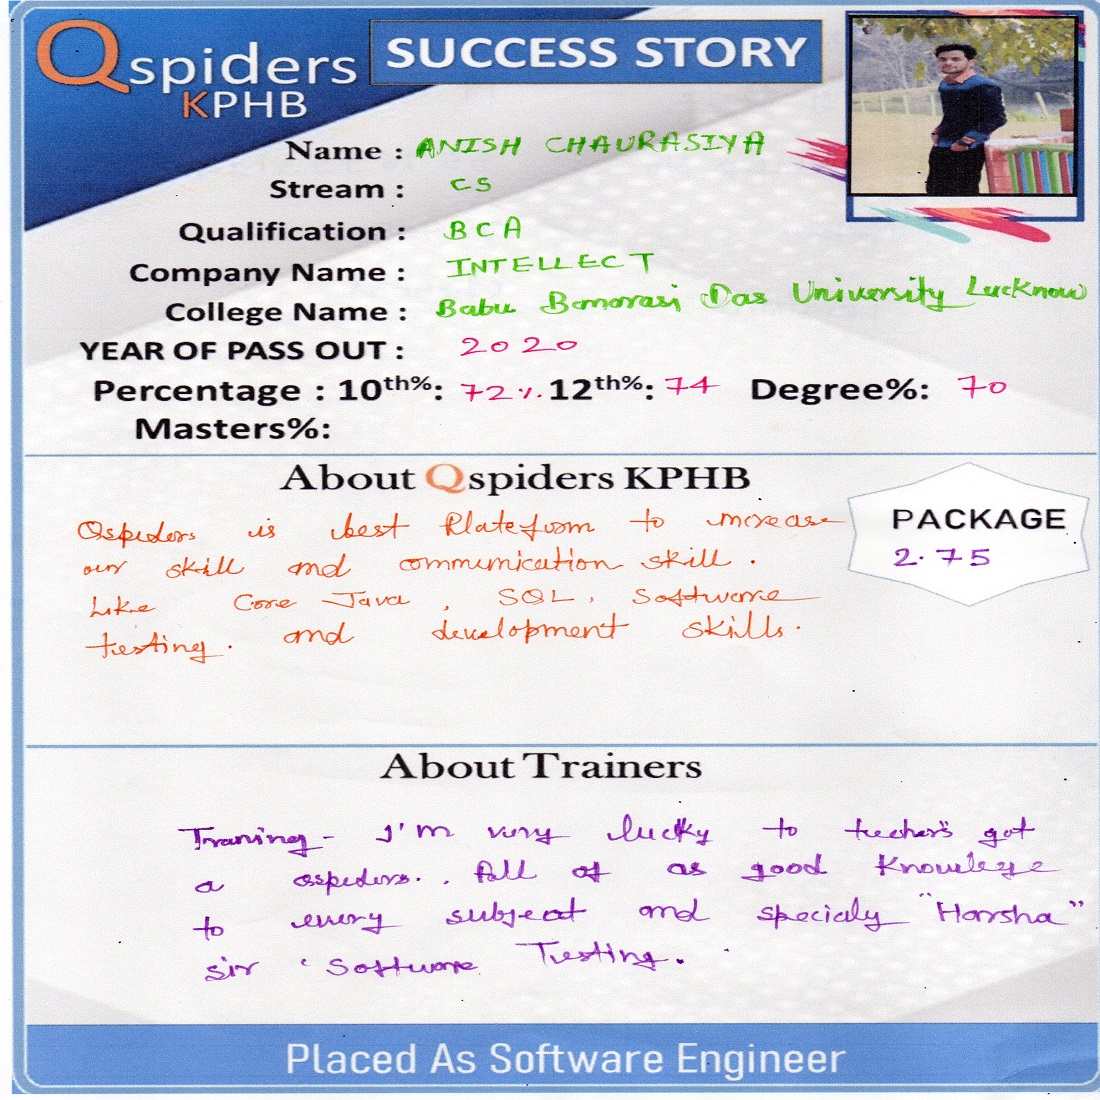 Qspiders
KPHB
SUCCESS STORY
Name : ANISH CHAURASIYA
Stream : CS
Qualification : BCA
Company Name : INTELLECT
College Name : Babu Banarasi Das University Lucknow
YEAR OF PASS OUT : 2020
Percentage : 10th%: 72%. 12th%: 74 Degree%: 70
Masters%:
About Qspiders KPHB
PACKAGE
2.75
Qspiders is best Plateform to increase
our skill and communication skill .
Like Core Java , SQL, Software
testing. and development skills.
About Trainers
Traning - I'm very lucky to teecher's got
a qspiders. . All of as good Knowlege
to every subject and specialy "Harsha"
sir ' Software Testing.
Placed As Software Engineer